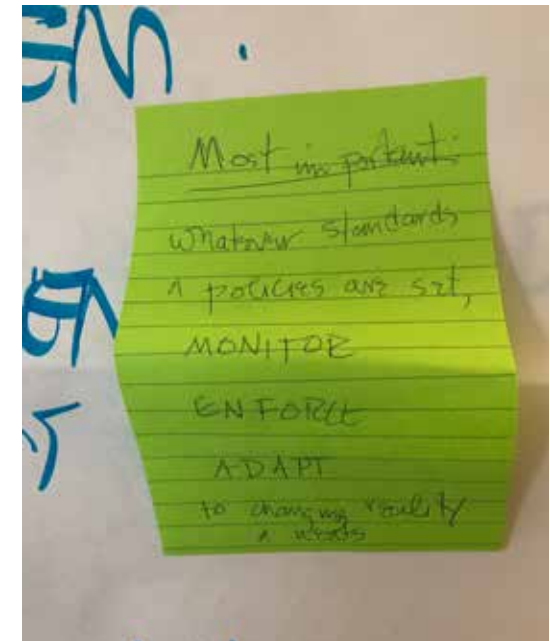 Most important:
Whatever standards
& policies are set,
MONITOR
ENFORCE
ADAPT
to changing reality
& needs